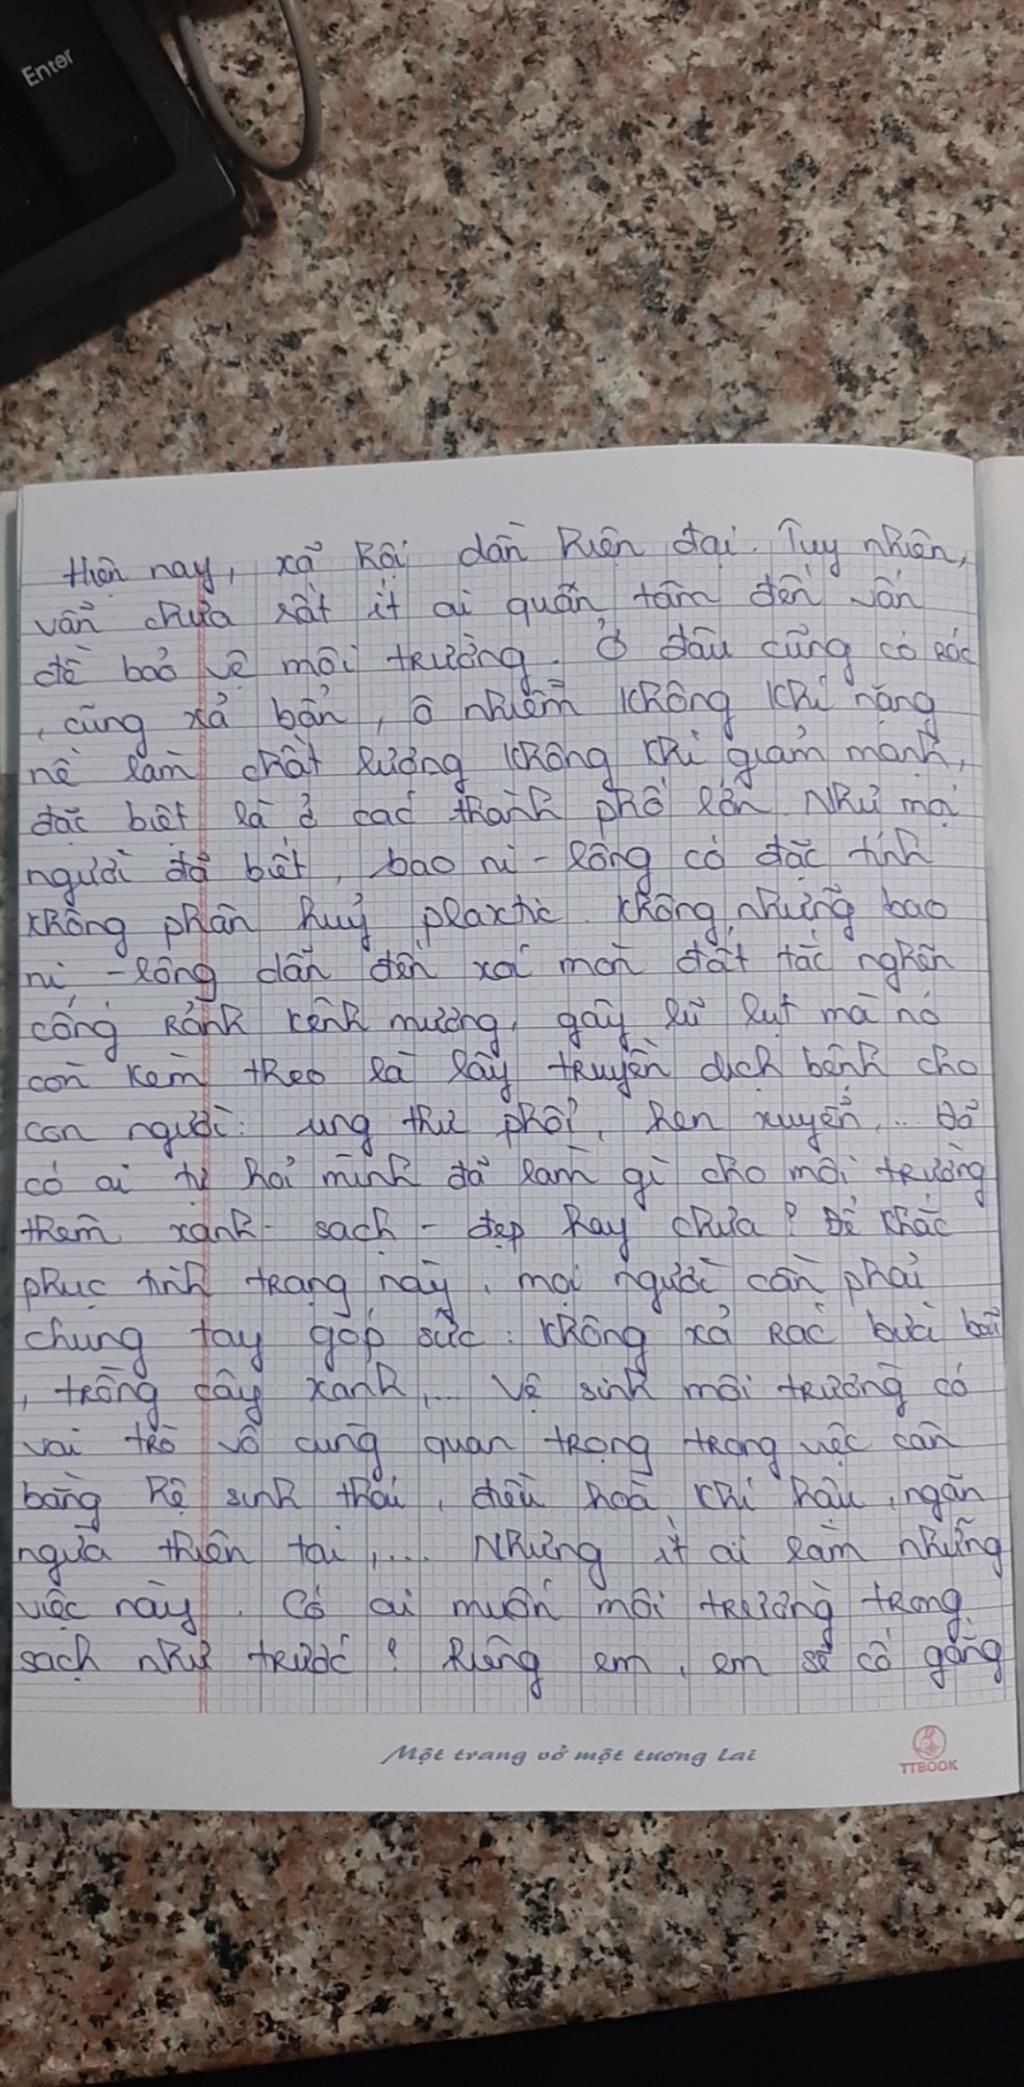 Enter
Hiện nay, xã hội dần hiện đại. Tuy nhiên,
vẫn chưa rất ít ai quan tâm đến vấn
đề bảo vệ môi trường. Ở đâu cũng có rác
, cũng xả bẩn, ô nhiễm không khí nặng
nề làm chất lượng không khí giảm mạnh,
đặc biệt là ở các thành phố lớn. Như mọi
người đã biết, bao ni-lông có đặc tính
không phân huỷ plaxtic. Không những bao
ni-lông dẫn đến xói mòn đất tắc nghẽn
cống rãnh kênh mương, gây lũ lụt mà nó
còn kèm theo là lây truyền dịch bệnh cho
con người: ung thư phổi, hen xuyễn,... Đã
có ai tự hỏi mình đã làm gì cho môi trường
thêm xanh - sạch - đẹp hay chưa? Để khắc
phục tình trạng này, mọi người cần phải
chung tay góp sức: không xả rác bừa bãi
, trồng cây xanh,... Vệ sinh môi trường có
vai trò vô cùng quan trọng trong việc cân
bằng hệ sinh thái, điều hoà khí hậu, ngăn
ngừa thiên tai,.... Nhưng ít ai làm những
việc này. Có ai muốn môi trường trong
sạch như trước? Riêng em, em sẽ cố gắng
Một trang vở một tương lai
TTBOOK